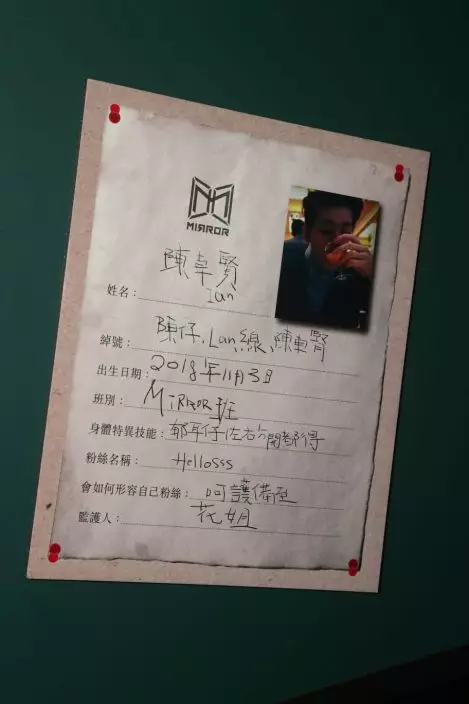 MIRROR
陳卓賢
姓名： Ian
綽號： 陳仔、Lan、線、陳東腎
出生日期： 2018年11月3日
班別： MIRROR班
身體特異技能： 郁耳仔佐右分開都得
粉絲名稱： Hellosss
會如何形容自己粉絲： 呵護備至
監護人： 花姐